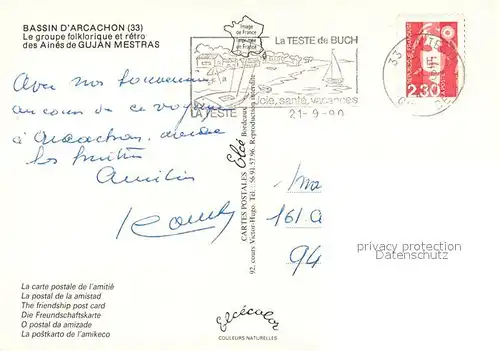 BASSIN D'ARCACHON (33)
Le groupe folklorique et rétro
des Ainés de GUJAN MESTRAS
Image
de France
Imprimée
en France
La TESTE de BUCH
LA TESTE
Joie, santé, vacances
21-9-90
33
2,30
Avec nos souvenirs
au cours de ce voyage
à Arcachon,
les
Amitiés
CARTES POSTALES Elcé Bordeaux
92, cours Victor-Hugo. Tél. : 56.91.57.96. Reproduction interdite
161
94
privacy protection
Datenschutz
La carte postale de l'amitié
La postal de la amistad
The friendship post card
Die Freundschaftskarte
O postal da amizade
La poŝtkarto de l'amikeco
Elcécolor
COULEURS NATURELLES